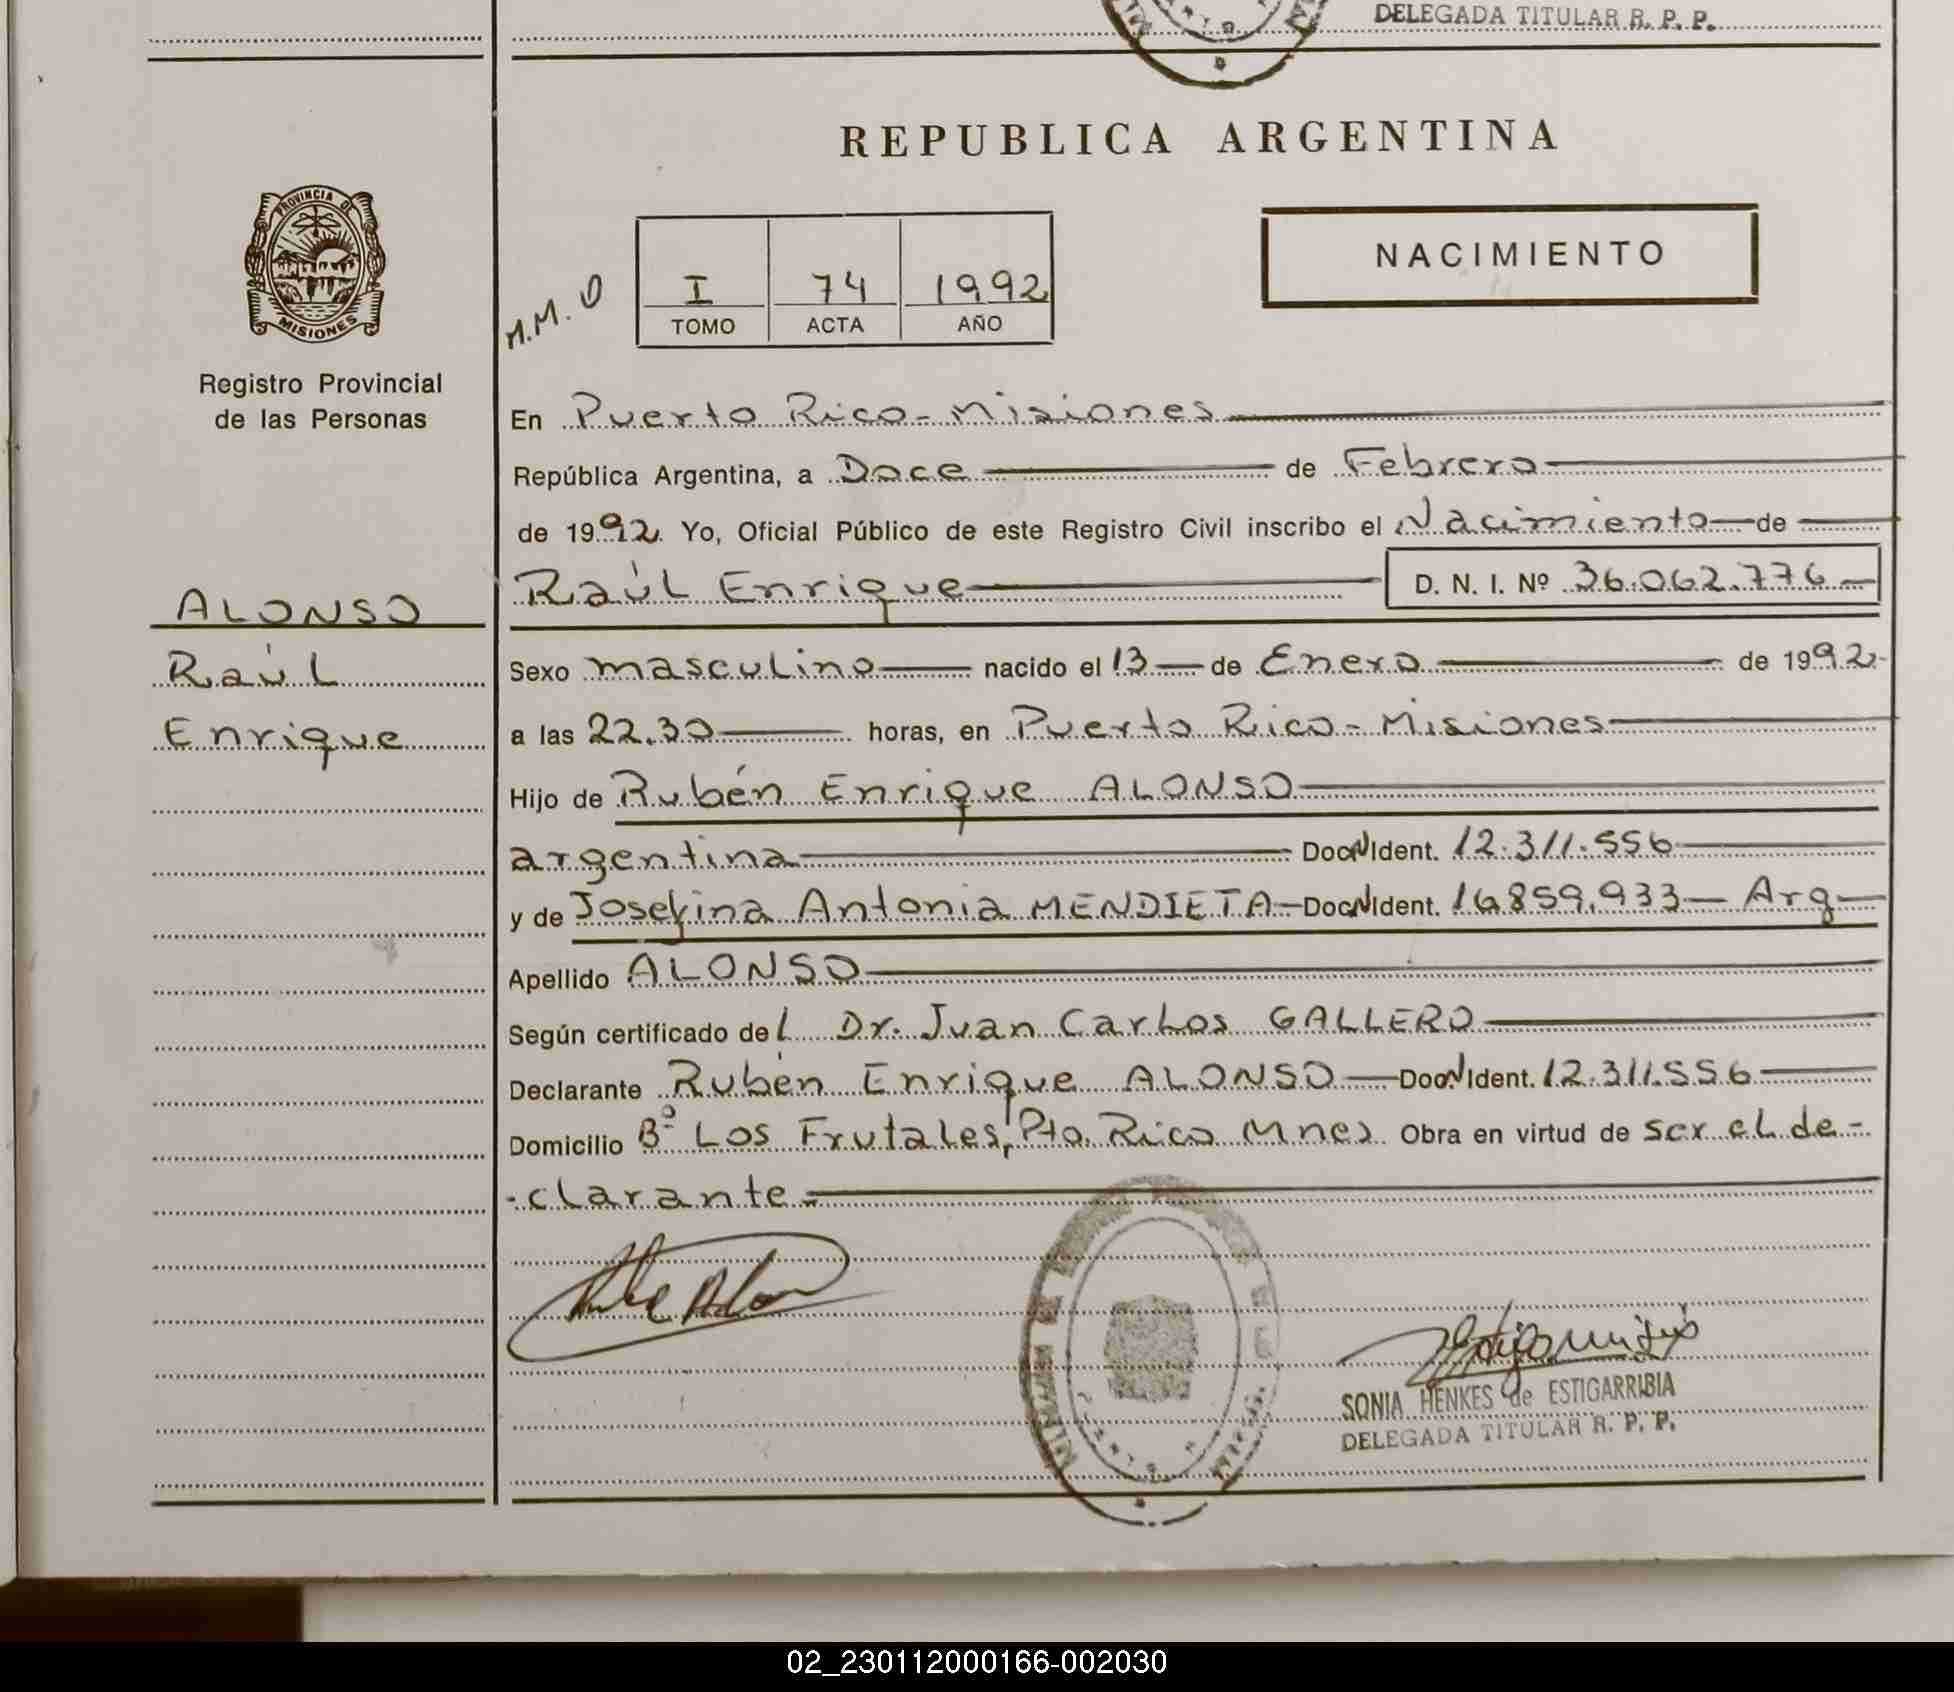 DELEGADA TITULAR R. P. P.
REPUBLICA ARGENTINA
PROVINCIA DE
MISIONES
Registro Provincial
de las Personas
M.M.
I 74 1992
TOMO ACTA AÑO
NACIMIENTO
En Puerto Rico - Misiones
República Argentina, a Doce de Febrero
de 1992 Yo, Oficial Público de este Registro Civil inscribo el Nacimiento de
Raúl Enrique D. N. I. Nº 36.062.776
ALONSO
Raúl
Enrique
Sexo masculino nacido el 13 de Enero de 1992
a las 22.30 horas, en Puerto Rico - Misiones
Hijo de Rubén Enrique ALONSO
argentina Doc. N Ident. 12.311.556
y de Josefina Antonia MENDIETA Doc. N Ident. 16.859.933 - Arg
Apellido ALONSO
Según certificado del Dr. Juan Carlos GALLERO
Declarante Rubén Enrique ALONSO Doc. N Ident. 12.311.556
Domicilio Bº Los Frutales, Pto. Rico Mnes Obra en virtud de ser el de-
-clarante.-
SONIA HENKES de ESTIGARRIBIA
DELEGADA TITULAR R. P. P.
02_230112000166-002030